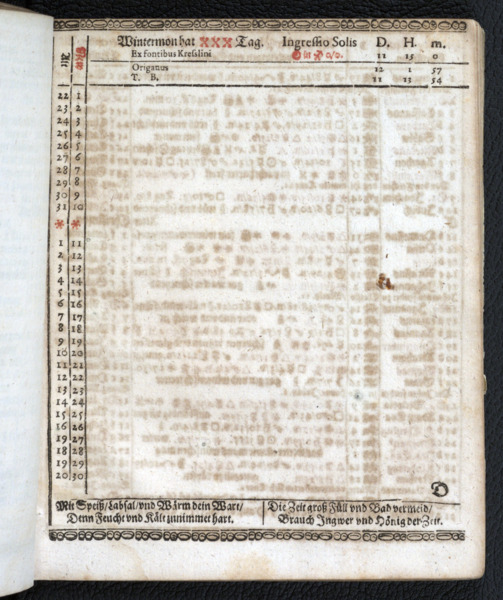 Wintermon hat XXX Tag. Ingressio Solis D. H. m.
Ex fontibus Kresslini ☉ in ♐ 0/0. 11 15 0
Origanus 12 1 57
T. B. 11 13 54
22 1
23 2
24 3
25 4
26 5
27 6
28 7
29 8
30 9
31 10
* *
1 11
2 12
3 13
4 14
5 15
6 16
7 17
8 18
9 19
10 20
11 21
12 22
13 23
14 24
15 25
16 26
19 27
18 28
19 29
20 30
D
Mit Speiß/Labsal/vnd Wärm dein Wart/
Denn Feucht vnd Kält zunimmet hart.
Die Zeit groß Füll vnd Bad vermeid/
Brauch Ingwer vnd Hönig der Zeit.